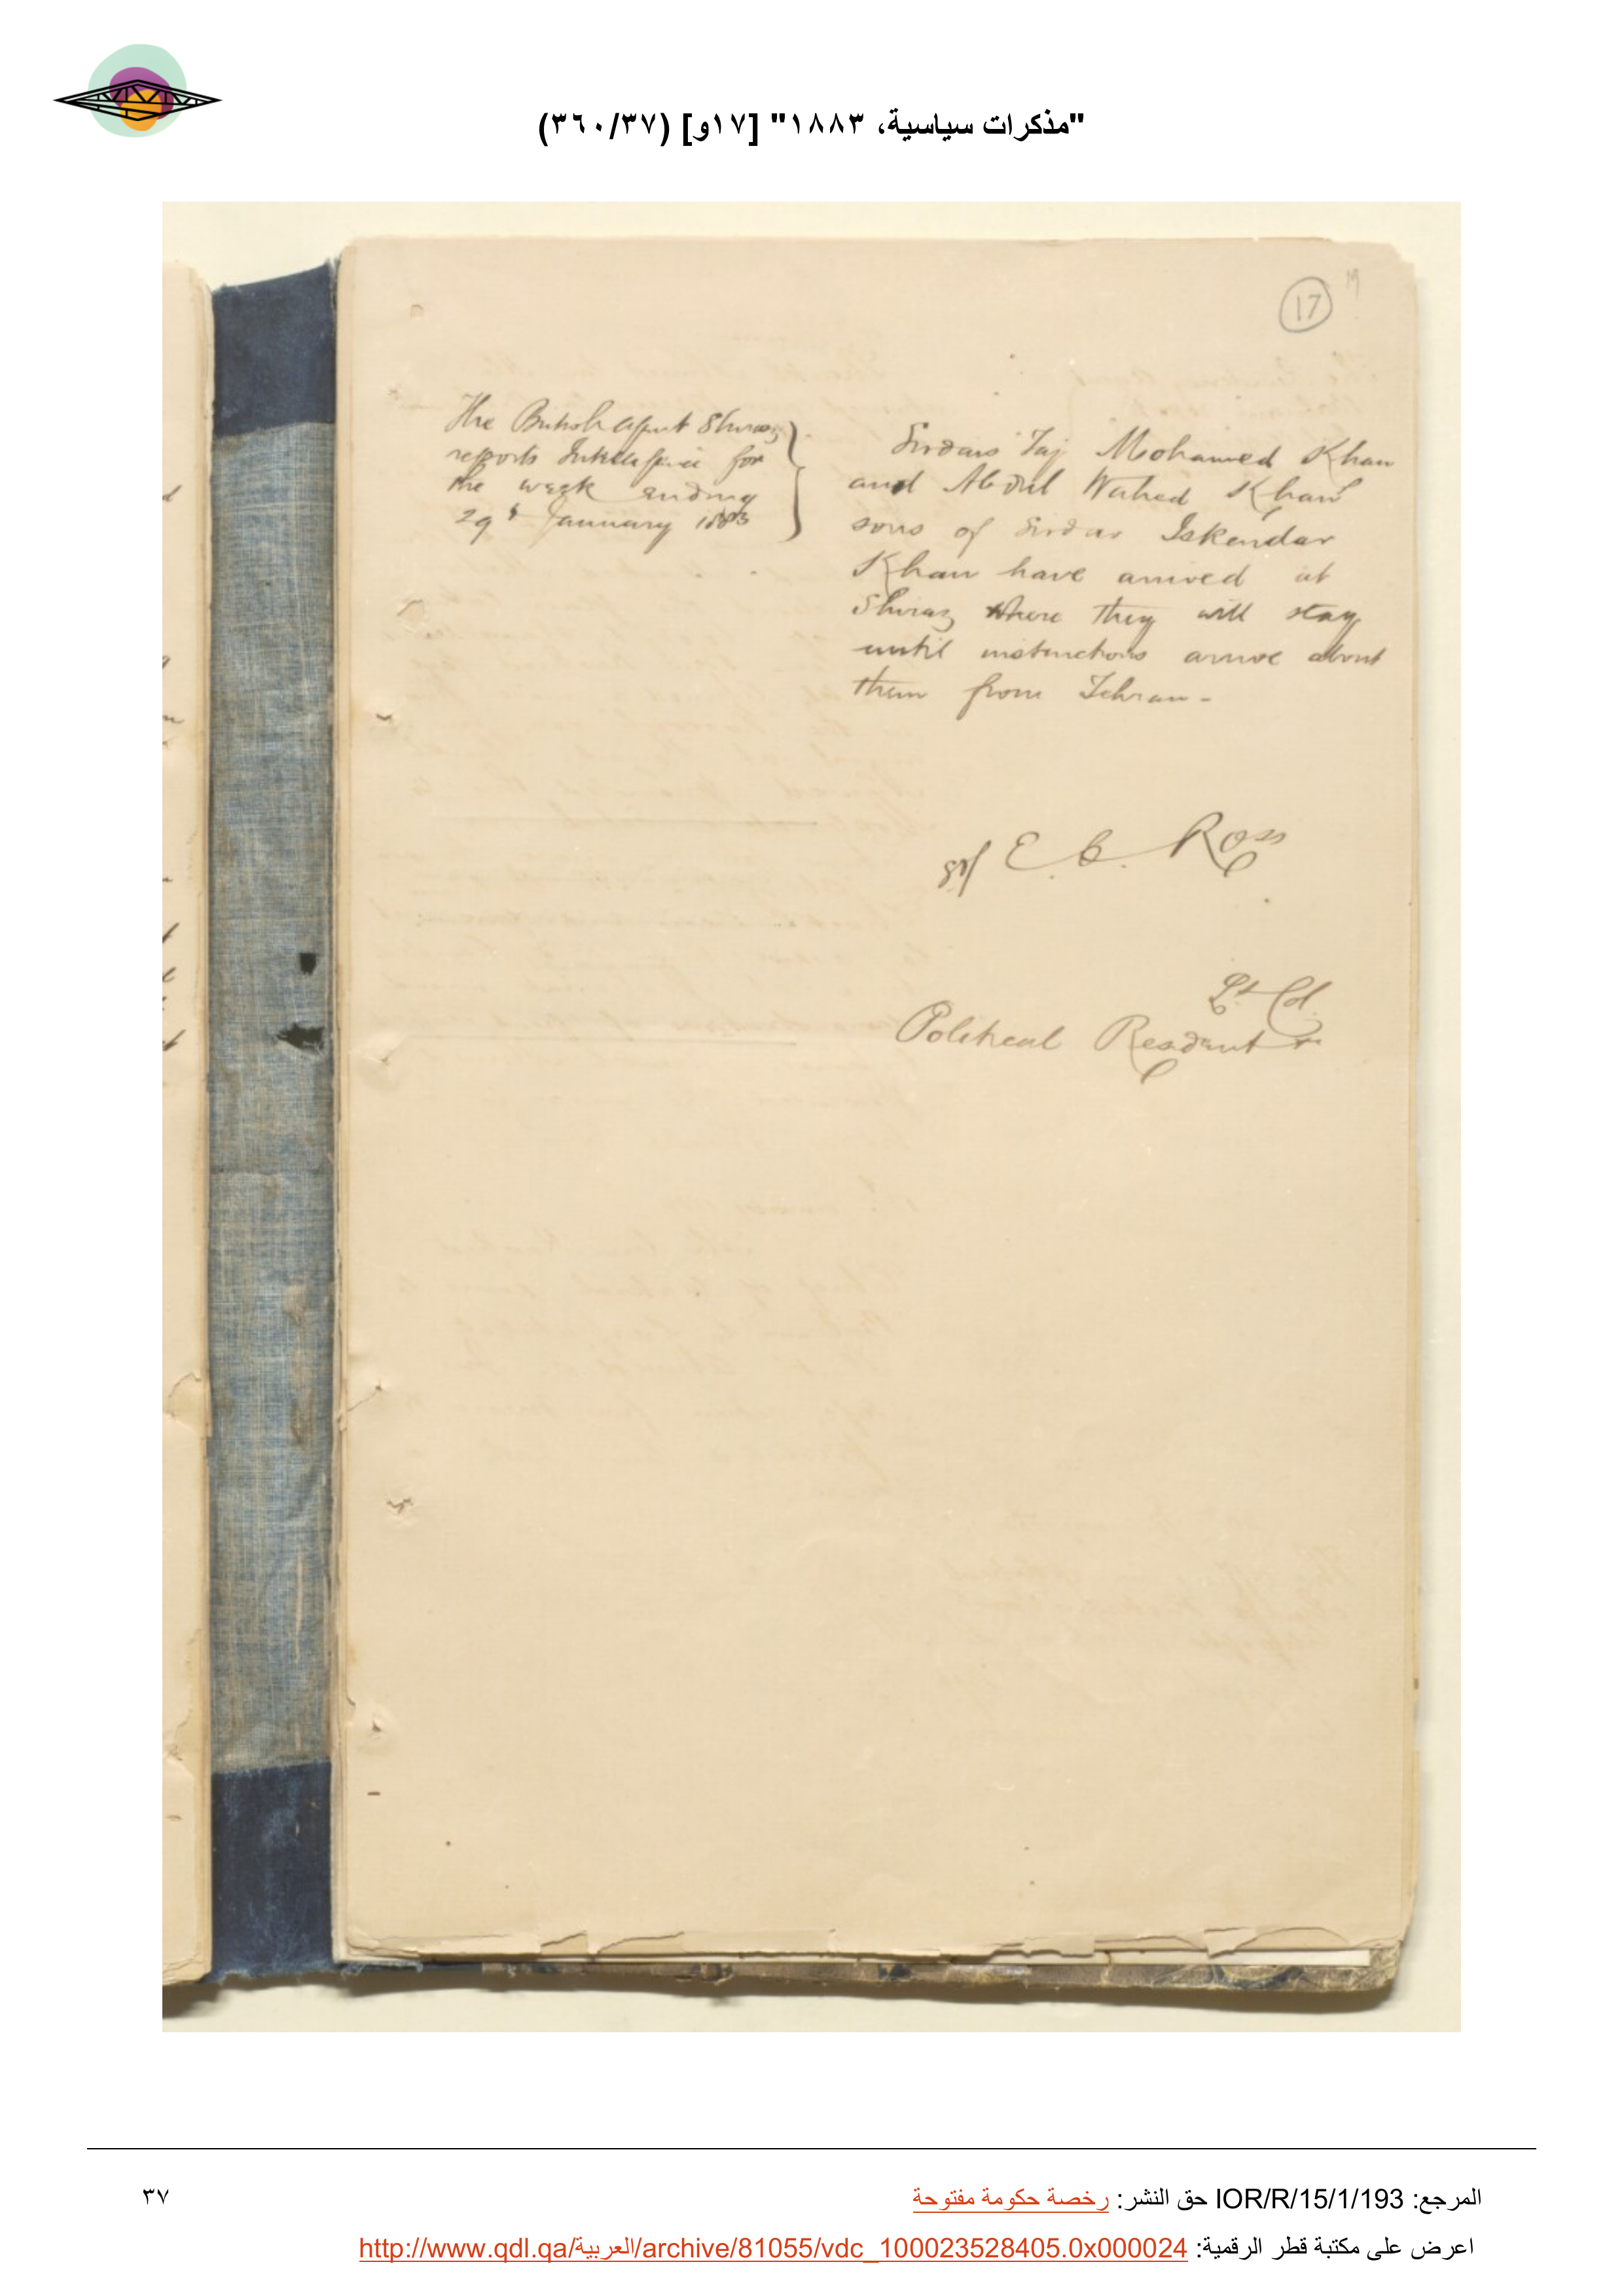 "مذكرات سياسية، ١٨٨٣" [١٧و] (٣٦٠/٣٧)
17
The British Agent Shiraz
reports Intelligence for
the week ending
29th January 1883
Sirdars Taj Mohamed Khan
and Abdul Wahed Khan
sons of Sirdar Iskendar
Khan have arrived at
Shiraz where they will stay
until instructions arrive about
them from Tehran -
E. C. Ross
Lt Col.
Political Resident
المرجع: IOR/R/15/1/193 حق النشر: رخصة حكومة مفتوحة
٣٧
اعرض على مكتبة قطر الرقمية: http://www.qdl.qa/العربية/archive/81055/vdc_100023528405.0x000024